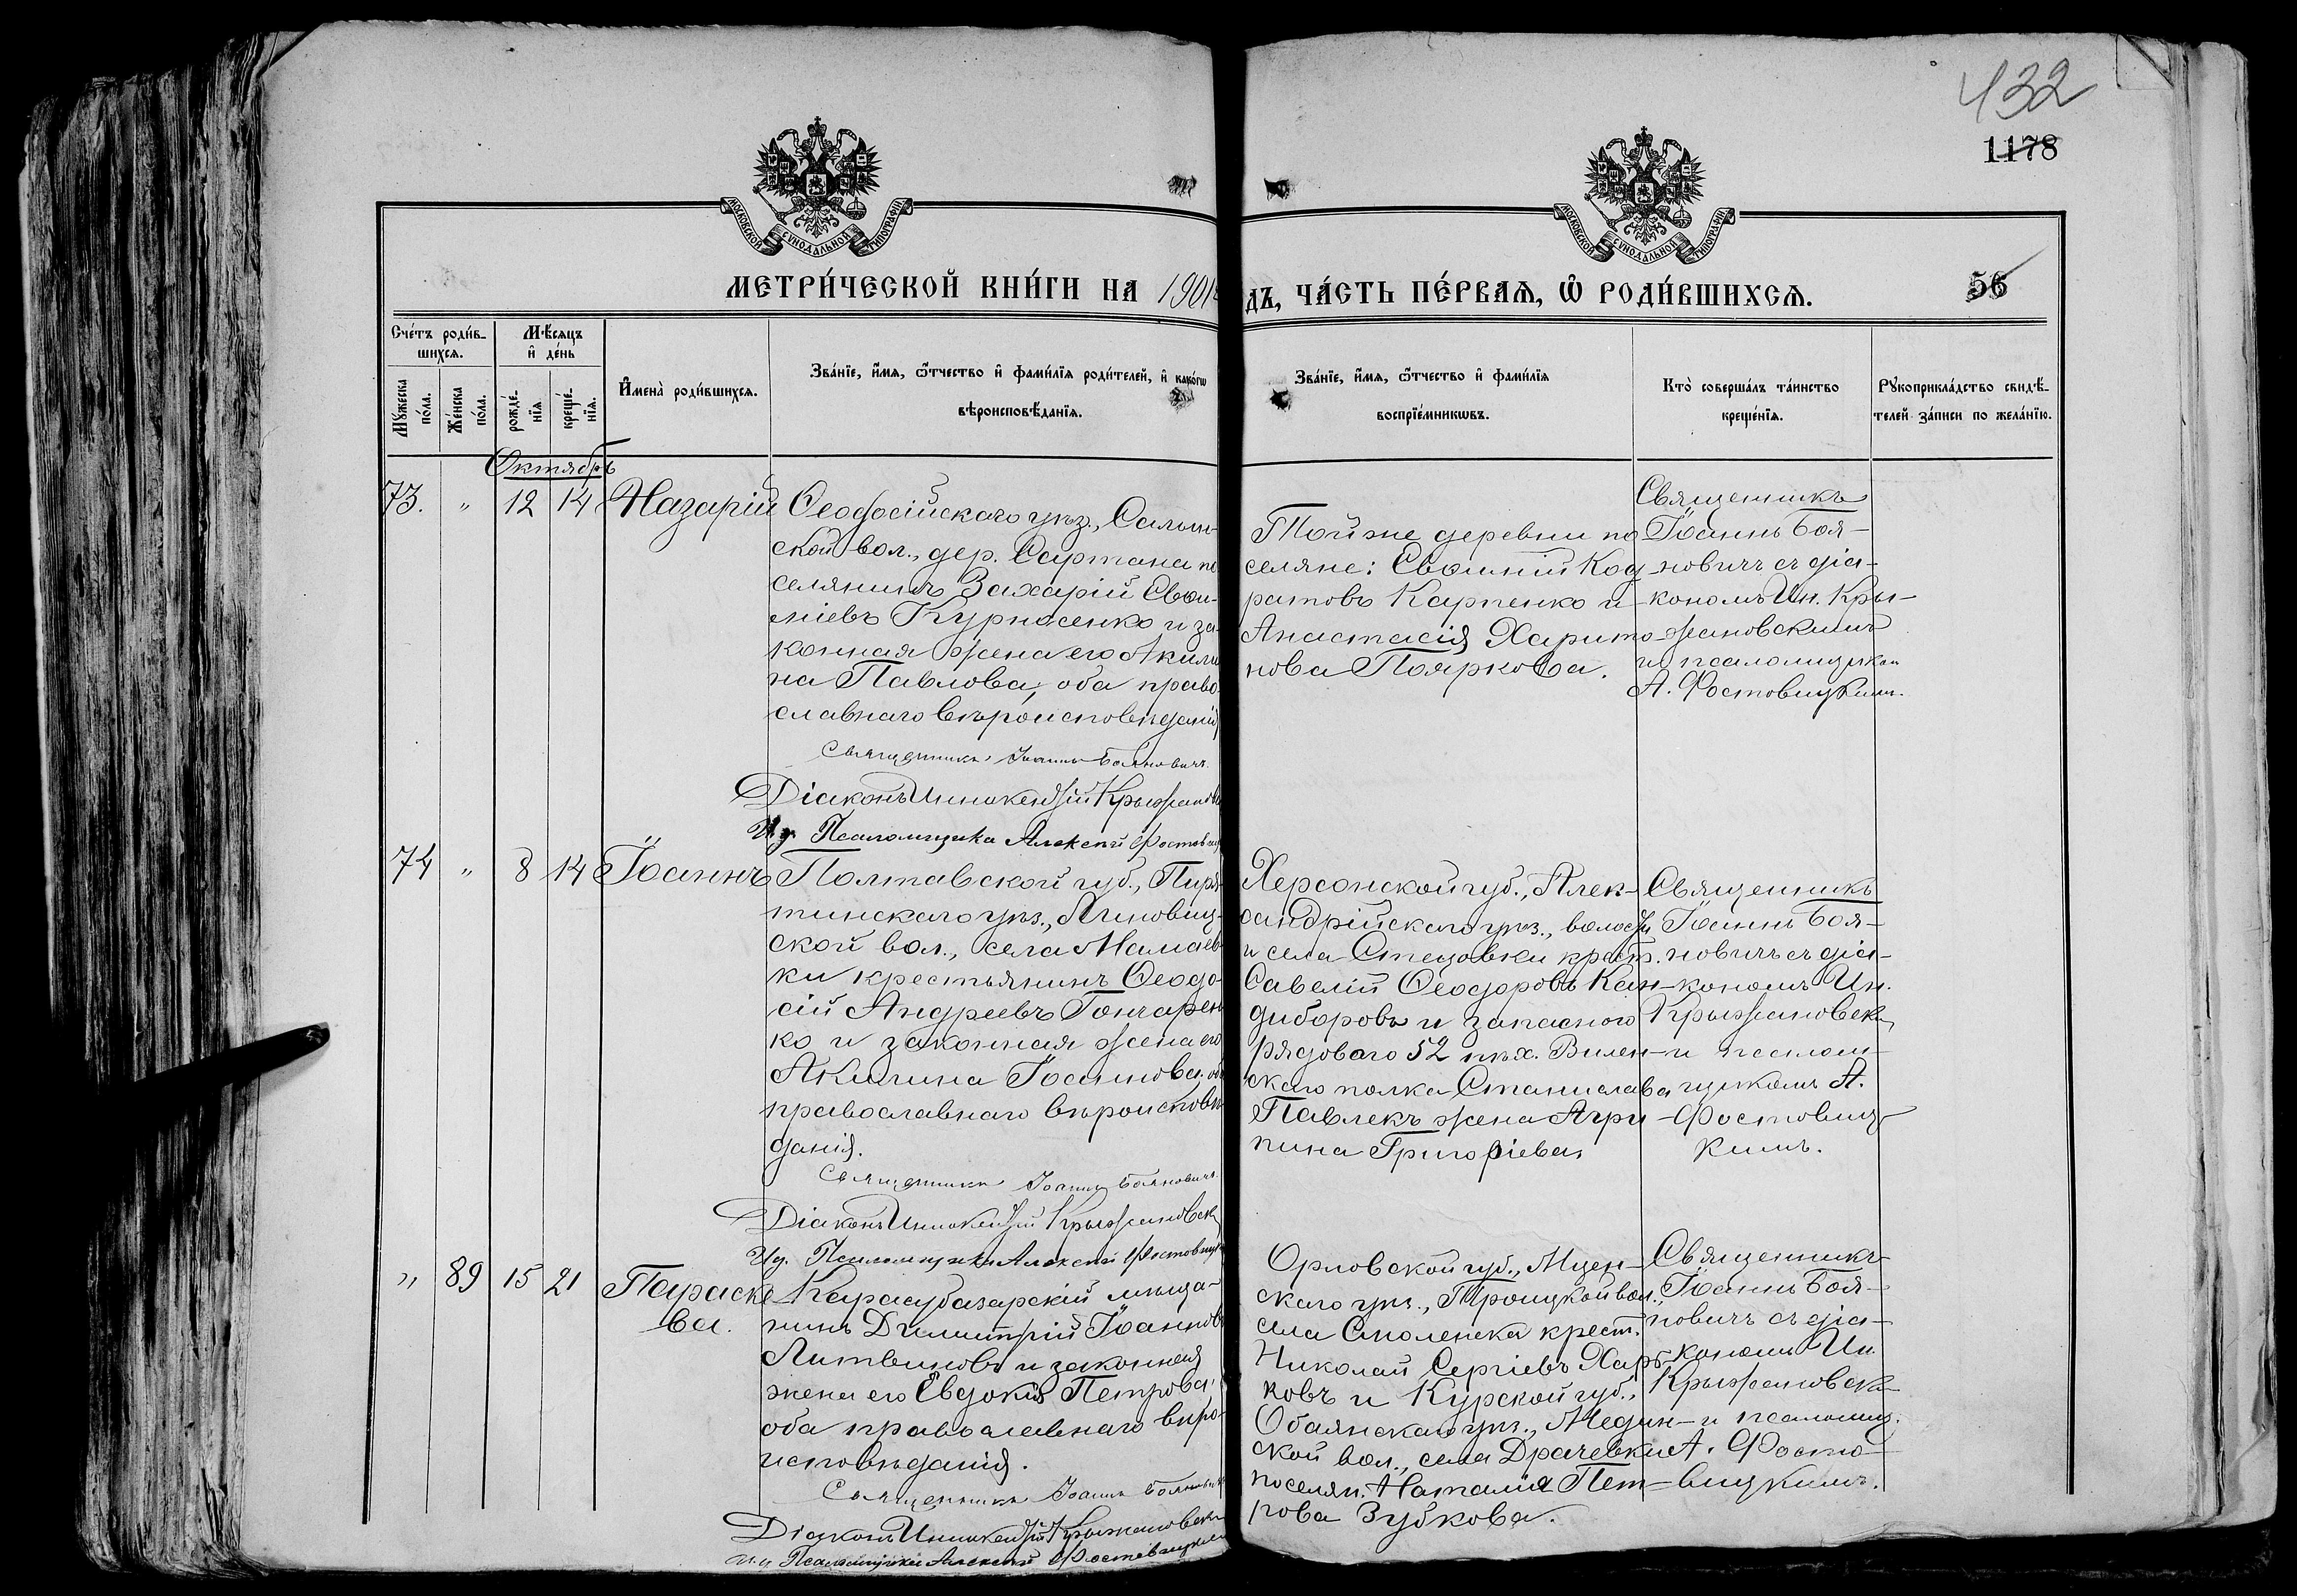 432
1178
МОСКОВСКОЙ СѴНОДАЛЬНОЙ ТИПОГРАФІИ
МОСКОВСКОЙ СѴНОДАЛЬНОЙ ТИПОГРАФІИ
МЕТРИ́ЧЕСКОЙ КНИ́ГИ НА 1901
дъ, ЧА́СТЬ ПЕ́РВАѦ, Ѡ҆ РОДИ́ВШИХСѦ.
56
Сче́тъ роди́в-
шихсѧ.
Мѣ́сѧцъ
и҆ де́нь
Мꙋ́жеска
по́ла.
Же́нска
по́ла.
рожде́-
нїѧ
креще́-
нїѧ.
И҆мена̀ роди́вшихсѧ.
Зва́нїе, и҆́мѧ, ѻ҆́тчество и҆ фами́лїѧ роди́телей, и҆ како́гѡ
вѣроисповѣ́данїѧ.
Зва́нїе, и҆́мѧ, ѻ҆́тчество и҆ фами́лїѧ
воспрїе́мникѡвъ.
Кто̀ соверша́лъ та́инство
креще́нїѧ.
Рꙋкоприкла́дство свидѣ́-
телей за́писи по жела́нїю.
Октябрь
73. " 12 14 Назарій
Ѳеодосійскаго уѣз., Салын-
ской вол., дер. Сартана по
селянинъ Захарій Евѳи-
міевъ Курносенко и за-
конная жена его Акили
на Павлова, оба право
славнаго вѣроисповѣданія
Священникъ Іоаннъ Бояновичъ
Діаконъ Иннокентій Крыжанов
И. д. Псаломщика Алексій Фостовиц
Той же деревни по
селяне: Евѳимій Код
ратовъ Карпенко и
Анастасія Харито
нова Пояркова.
Священникъ
Іоаннъ Боя-
новичъ съ діа-
кономъ Ин. Кры-
жановскимъ
и псаломщиком
А. Фостовицкимъ.
74 " 8 14 Іоаннъ
Полтавской губ., Пиря-
тинскаго уѣз., Ячновиц-
ской вол., села Мамаев
ки крестьянинъ Ѳеодо-
сій Андреевъ Гончарен
ко и законная жена его
Акилина Іоаннова оба
православнаго вѣроисповѣ
данія.
Священникъ Іоаннъ Бояновичъ
Діаконъ Иннокентій Крыжановск
И д. Псаломщика Алексій Фостовицк
Херсонской губ., Алек-
сандрійскаго уѣз., волости
и села Стецовки крест.
Савелій Ѳеодоровъ Кан-
диборовъ и запаснаго
рядоваго 52 пѣх. Вилен-
скаго полка Станислава
Павлекъ жена Агри-
пина Григоріева
Священникъ
Іоаннъ Боя-
новичъ съ діа-
кономъ Ин.
Крыжановски
и псалом-
щикомъ А.
Фостовиц-
кимъ.
" 89 15 21 Параске
ва.
Карасубазарскій мѣща-
нинъ Димитрій Іоаннов
Литвиновъ и законная
жена его Евдокія Петрова,
оба православнаго вѣро-
исповѣданія.
Священникъ Іоаннъ Бояновичъ
Діаконъ Иннокентій Крыжановски
И д Псаломщика Алексій Фостовицкій
Орловской губ., Мцен-
скаго уѣз., Троицкой вол.,
села Смоленска крест.
Николай Сергіевъ Харь-
ковъ и Курской губ.,
Обаянскаго уѣз., Медин-
ской вол., села Драчевки
поселян. Наталія Пет-
рова Зубкова.
Священникъ
Іоаннъ Боя-
новичъ съ діа-
кономъ Ин
Крыжановски
и псаломщ.
А. Фосто-
вицкимъ.